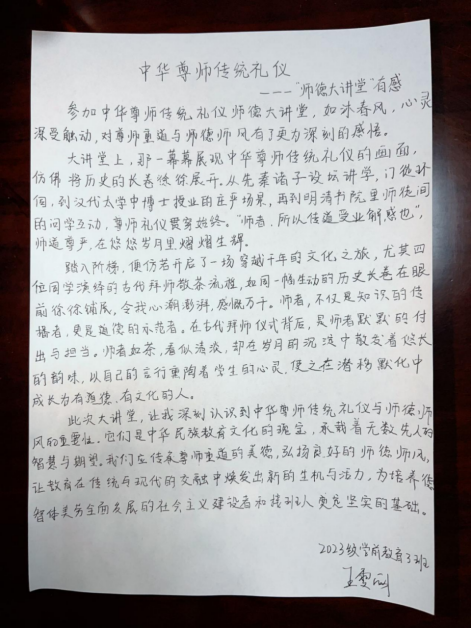 中华尊师传统礼仪
———"师德大讲堂"有感
参加中华尊师传统礼仪师德大讲堂，如沐春风，心灵
深受触动，对尊师重道与师德师风有了更为深刻的感悟。
大讲堂上，那一幕幕展现中华尊师传统礼仪的画面，
仿佛将历史的长卷徐徐展开。从先秦诸子设坛讲学，门徒环
伺，到汉代太学中博士授业的庄严场景，再到明清书院里师徒间
的问学互动，尊师礼仪贯穿始终。"师者，所以传道受业解惑也"，
师道尊严，在悠悠岁月里熠熠生辉。
踏入阶梯，便仿若开启了一场穿越千年的文化之旅，尤其四
位同学演绎的古代拜师敬茶流程，如同一幅生动的历史长卷在眼
前徐徐铺展，令我心潮澎湃，感慨万千。师者，不仅是知识的传
播者，更是道德的示范者。在古代拜师仪式背后，是师者默默的付
出与担当。师者如茶，看似清淡，却在岁月的沉淀中散发着悠长
的韵味，以自己的言行熏陶着学生的心灵，使之在潜移默化中
成长为有道德、有文化的人。
此次大讲堂，让我深刻认识到中华尊师传统礼仪与师德师
风的重要性。它们是中华民族教育文化的瑰宝，承载着无数先人的
智慧与期望。我们应传承尊师重道的美德，弘扬良好的师德师风，
让教育在传统与现代的交融中焕发出新的生机与活力，为培养德
智体美劳全面发展的社会主义建设者和接班人奠定坚实的基础。
2023级学前教育3班
王雪